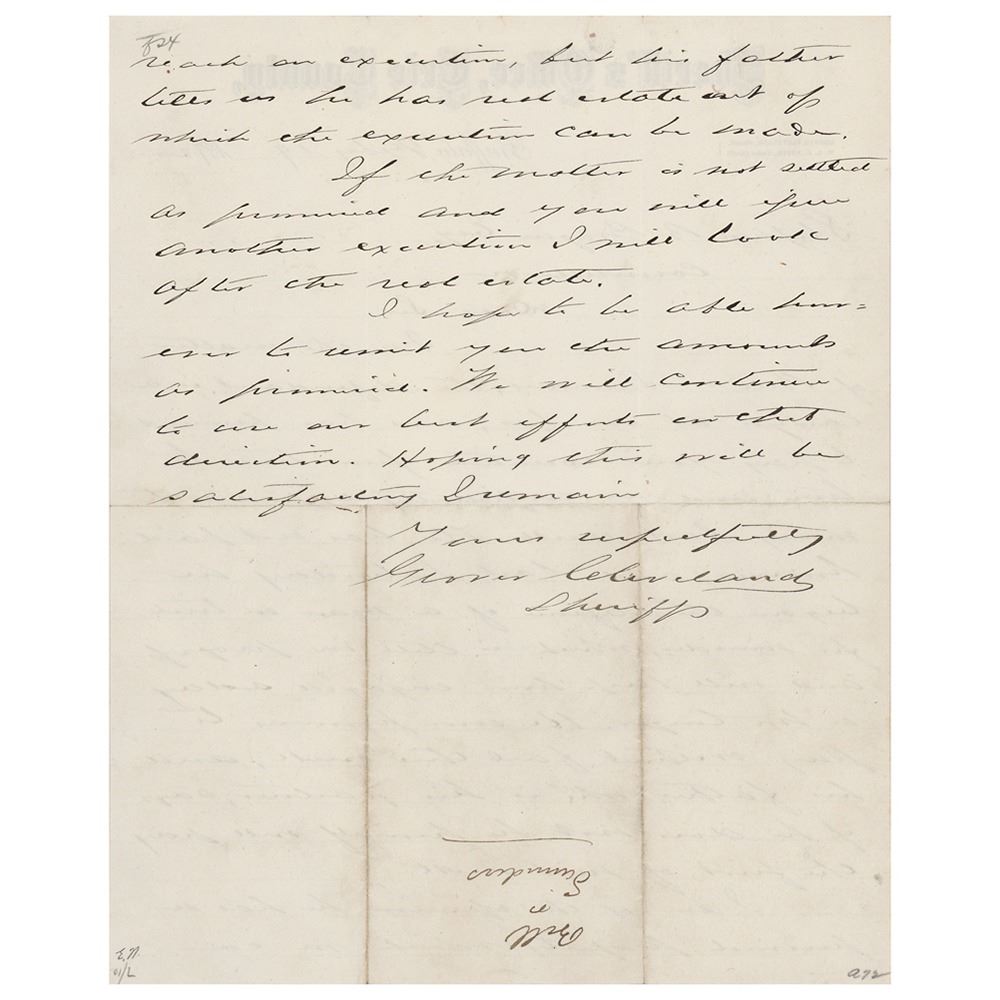 reach on execution, but his father
tells us he has real estate out of
which the execution can be made.
If the matter is not settled
as promised and you will issue
another execution I will look
after the real estate.
I hope to be able how=
ever to remit you the amounts
as promised. We will continue
to use our best efforts in that
direction. Hoping this will be
satisfactory I remain
Yours respectfully
Grover Cleveland
Sheriff
Bill
vs
Saunders
a72